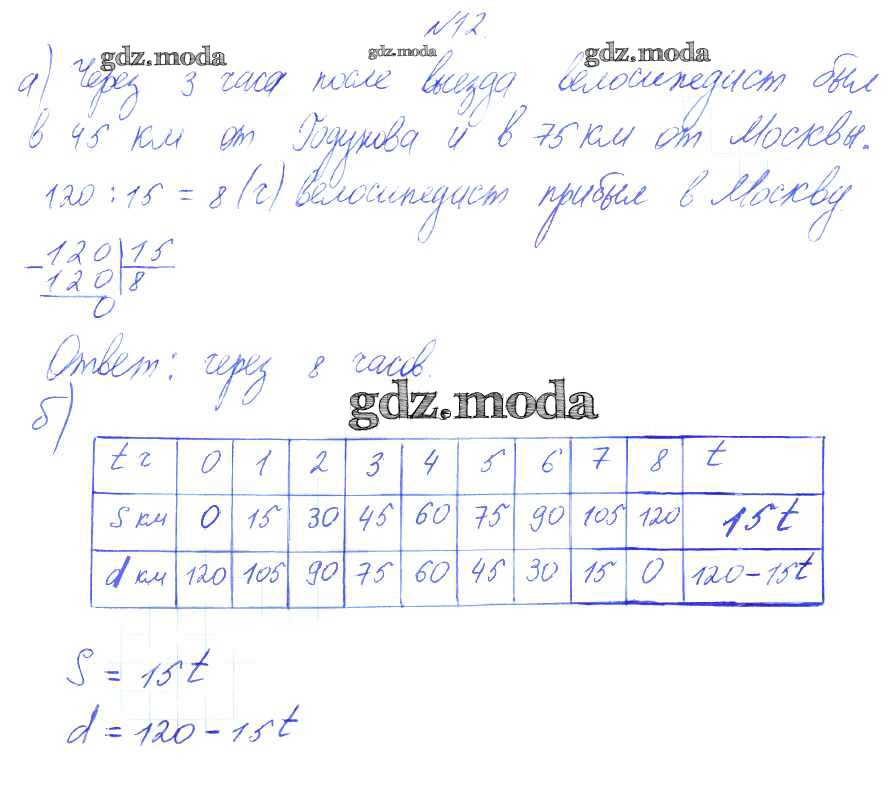 №12.
gdz.moda gdz.moda gdz.moda
а) Через 3 часа после выезда велосипедист был
в 45 км от Годунова и в 75 км от Москвы.
120 : 15 = 8 (ч) велосипедист прибыл в Москву
- 120 | 15
120 | 8
0
Ответ: через 8 часов.
gdz.moda
б)
t ч 0 1 2 3 4 5 6 7 8 t
S км 0 15 30 45 60 75 90 105 120 15t
d км 120 105 90 75 60 45 30 15 0 120-15t
S = 15t
d = 120 - 15t